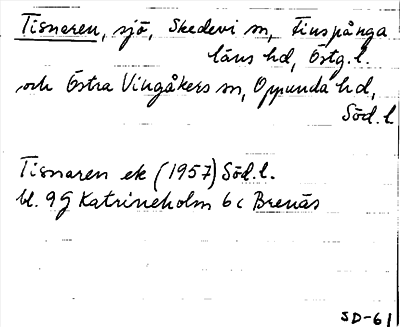 Tisnaren, sjö, Skedevi sn, Finspånga
läns hd, Östg. l.
och Östra Vingåkers sn, Oppunda hd,
Söd. l
Tisnaren ek (1957) Söd. l.
bl. 9G Katrineholm 6c Brenäs
SD-61